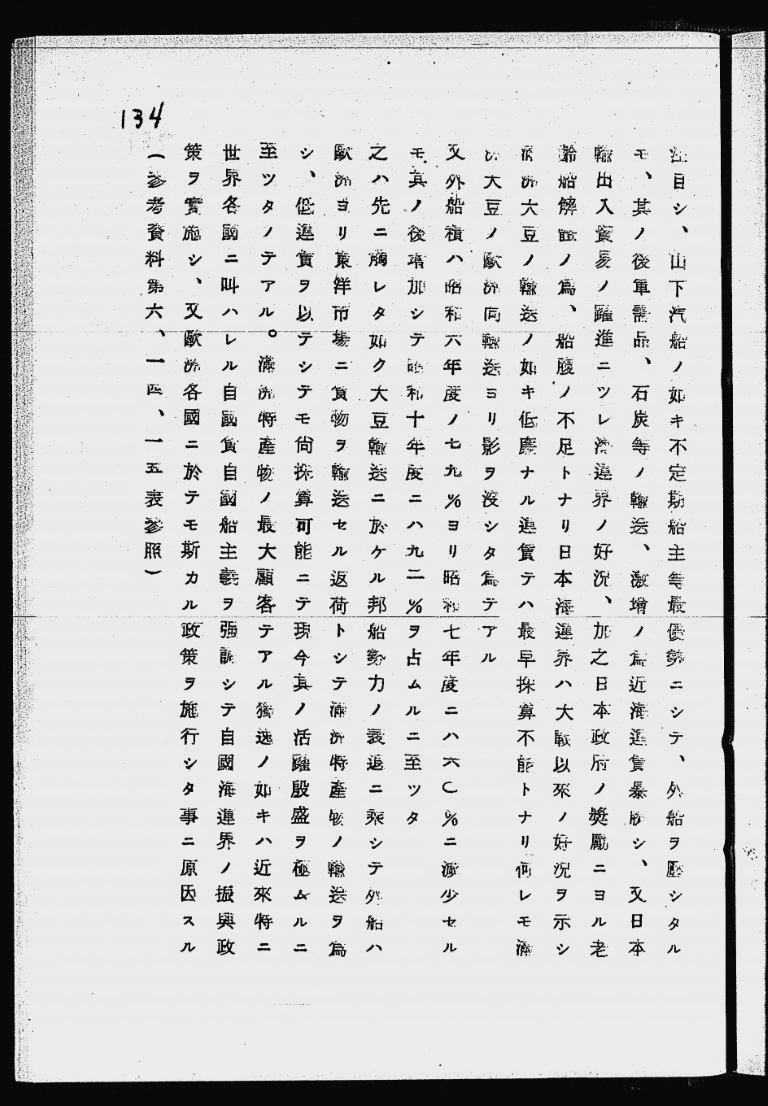 134
注目シ、山下汽船ノ如キ不定期船主等最優勢ニシテ、外船ヲ壓シタル
モ、其ノ後軍需品、石炭等ノ輸送、激增ノ爲近海運賃暴騰シ、又日本
輸出入貿易ノ躍進ニツレ海運界ノ好況、加之日本政府ノ奬勵ニヨル老
齡船解散ノ爲、船腹ノ不足トナリ日本海運界ハ大戰以來ノ好況ヲ示シ
滿洲大豆ノ輸送ノ如キ低廉ナル運賃テハ最早採算不能トナリ何レモ滿
洲大豆ノ歐洲向輸送ヨリ影ヲ沒シタ爲テアル
又外船積ハ昭和六年度ノ七九％ヨリ昭和七年度ニハ六〇％ニ減少セル
モ其ノ後增加シテ昭和十年度ニハ九二％ヲ占ムルニ至ツタ
之ハ先ニ觸レタ如ク大豆輸送ニ於ケル邦船勢力ノ衰退ニ乘シテ外船ハ
歐洲ヨリ東洋市場ニ貨物ヲ輸送セル返荷トシテ滿洲特產物ノ輸送ヲ爲
シ、低運賃ヲ以テシテモ尙採算可能ニテ現今其ノ活躍殷盛ヲ極ムルニ
至ツタノテアル。滿洲特產物ノ最大顧客テアル獨逸ノ如キハ近來特ニ
世界各國ニ叫ハレル自國貨自國船主義ヲ强調シテ自國海運界ノ振興政
策ヲ實施シ、又歐洲各國ニ於テモ斯カル政策ヲ施行シタ事ニ原因スル
（參考資料第六、一四、一五表參照）